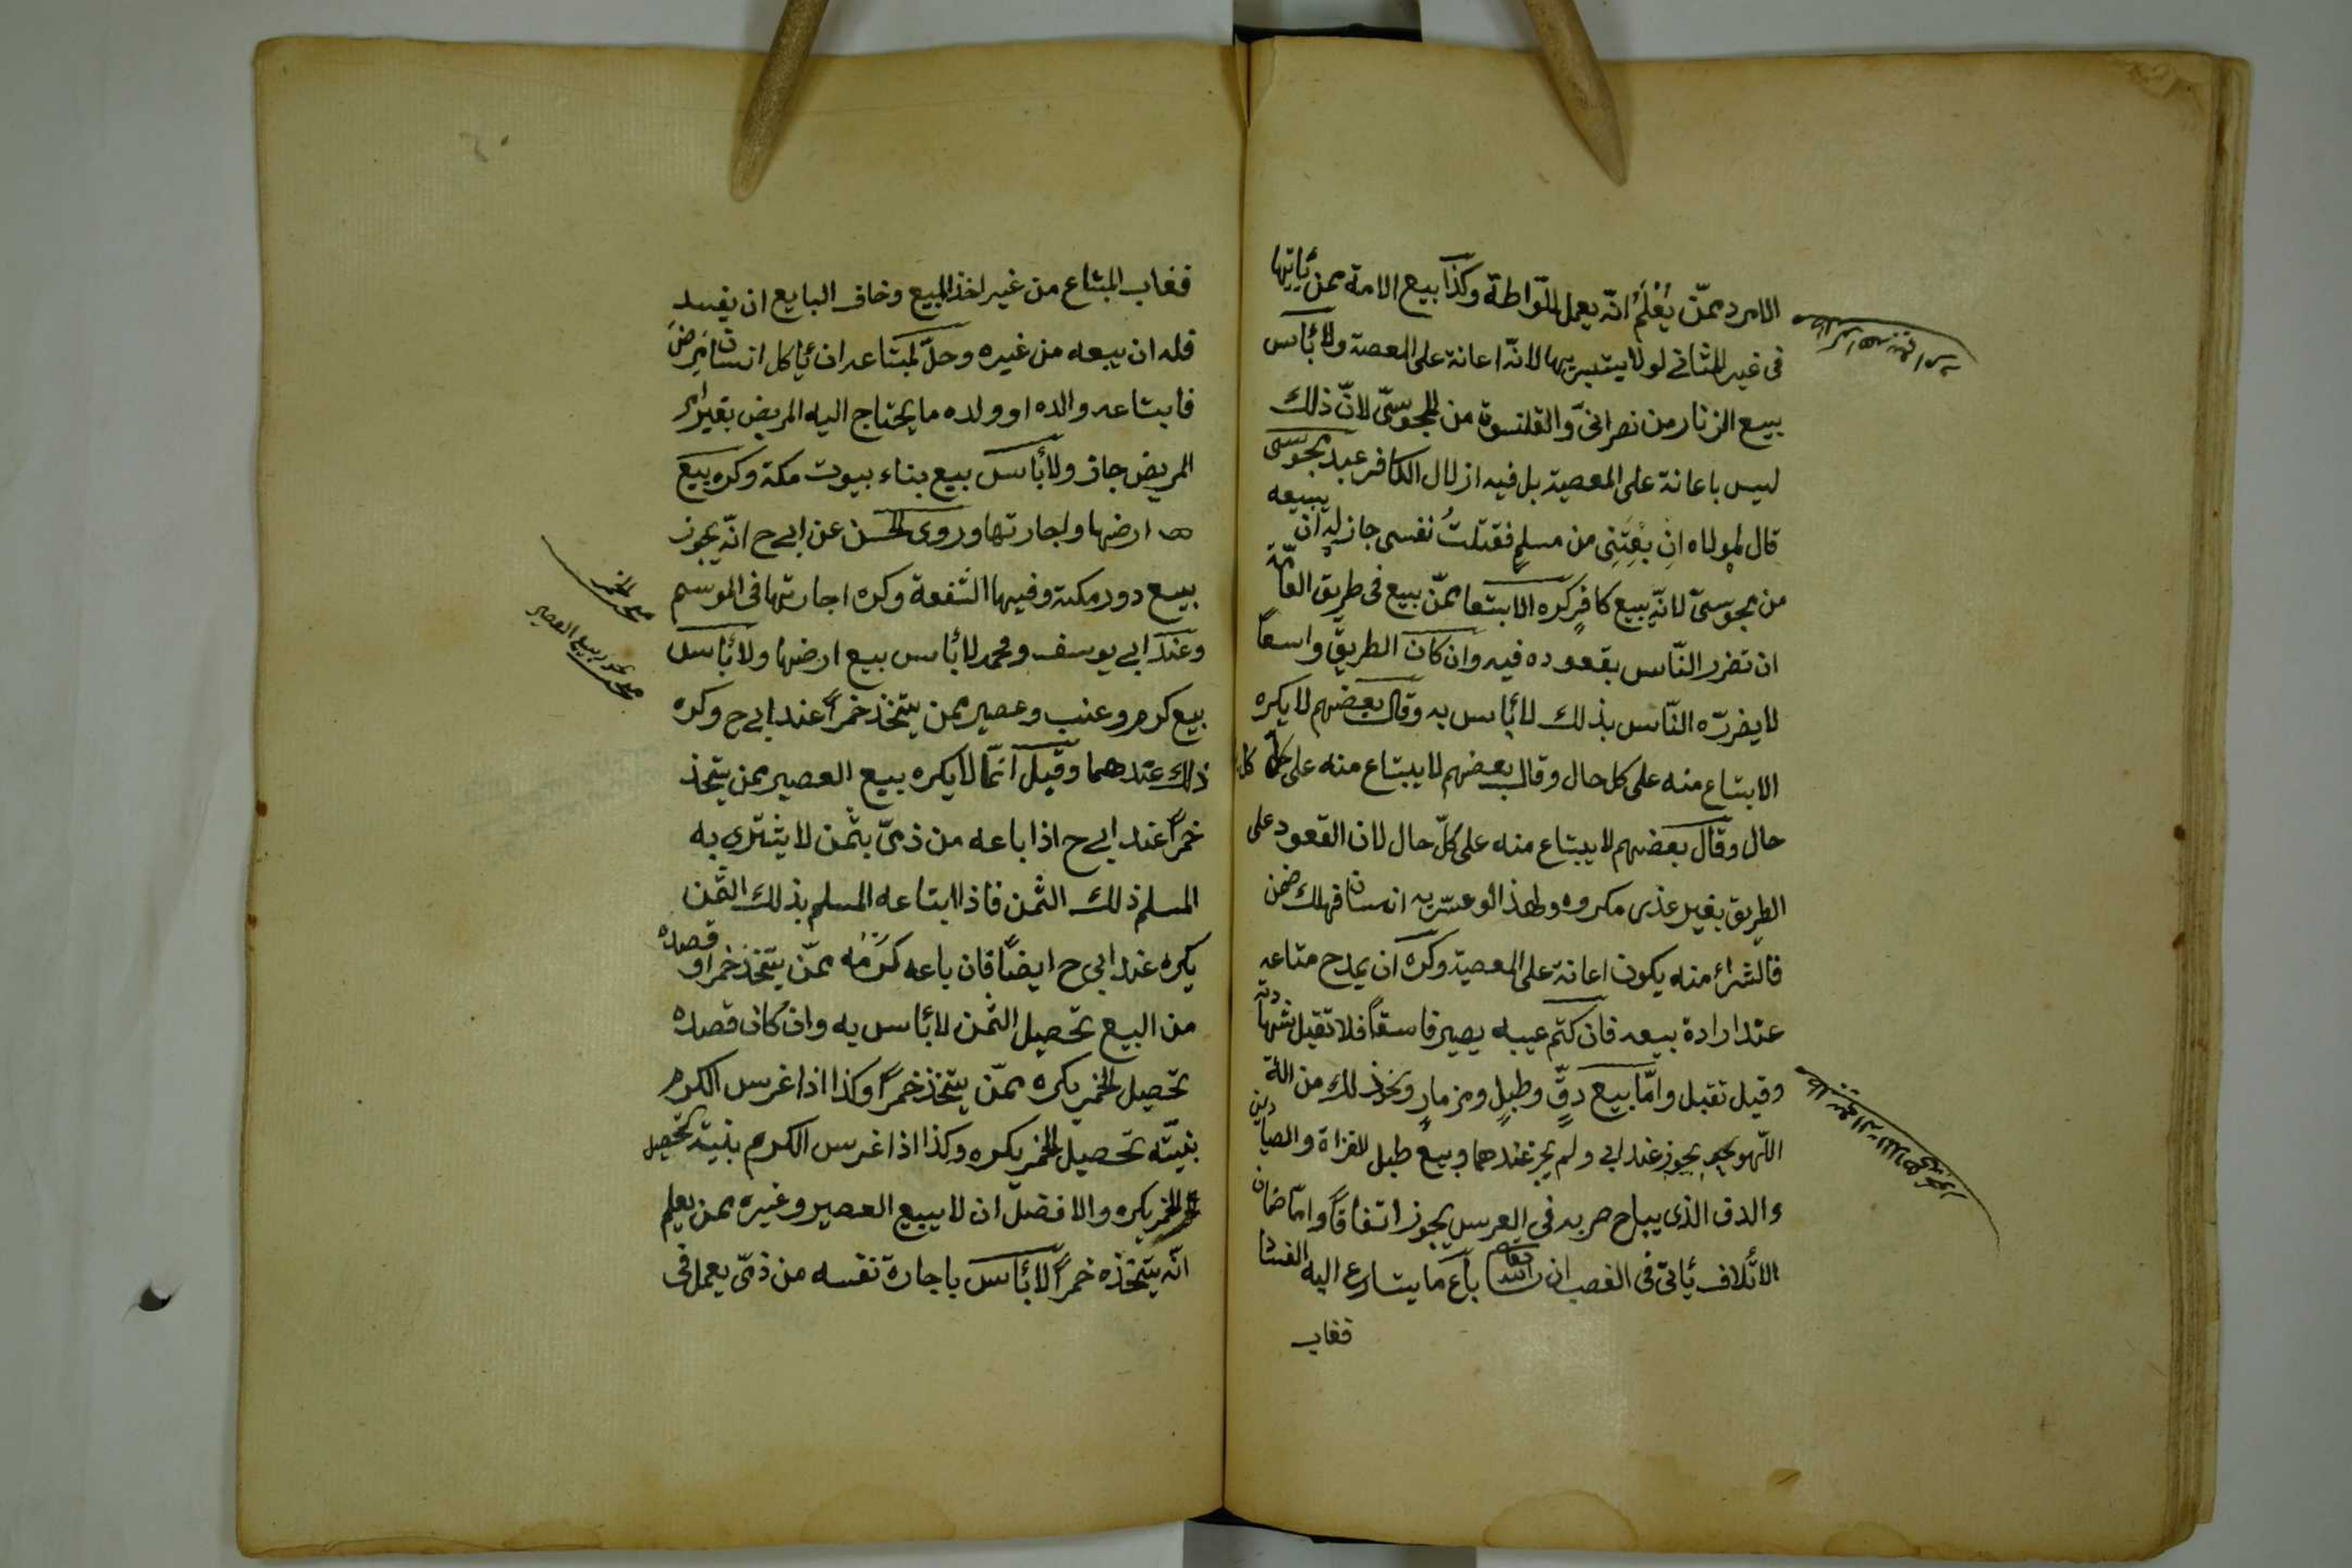 الامرد ممّن يُعْلَمُ انّه يعمل اللّواطة وكذا بيع الامة ممن يأتيها
فى غير المثانى لو لا يستبريها لانّه اعانة على المعصية ولا بأس
بيع الزنار من نصرانىّ والقلنسوة من المجوسىّ لانّ ذلك
ليس باعانة على المعصية بل فيه اذلال الكافر عبد مجوسى
قال لمولاه اِنْ بِعْتَنِى من مسلم فقتلتُ نفسى جاز له ان يبيعه
من مجوسىّ لانّه بيع كافرٍ كره الابتعا ممّن يبيع فى طريق العامّة
ان تضرر النّاس بقعوده فيه وان كان الطريق واسعاً
لا يضرّه النّاس بذلك لا بأس به وقال بعضهم لا يكره
الابتاع منه على كل حال وقال بعضهم لا يبتاع منه على كل
حال وقال بعضهم لا يبتاع منه على كلّ حال لان القعود على
الطريق بغير عذر مكروه ولهذا لو عسر به انسان فهلك ضمن
فالشراء منه يكون اعانة على المعصية وكره ان يمدح متاعه
عند ارادة بيعه فان كتم عيبه يصير فاسقاً فلا تقبل شهادته
وقيل تقبل وامّا بيع دفٍّ وطبلٍ ومزمارٍ ونحو ذلك من الة
اللّهو يجوز عند ابى ولم يجز عندهما وبيع طبل للغزاة والصيادين
والدف الذى يباح ضربه فى العرس يجوز اتفاقاً وامّا ضمان
الاتلاف يأتى فى الغصب ان باع ما يتسارع اليه الفساد
فغاب
فغاب المبتاع من غير اخذ المبيع وخاف البايع ان يفسد
فله ان يبيعه من غيره وحلّ لمبتاعه ان يأكل انسان مَرِضَ
فابتاعه والده او ولده ما يحتاج اليه المريض بغير امر
المريض جاز ولا بأس بيع بناء بيوت مكة وكره بيع
ارضها واجارتها وروى الحسن عن ابى ح انّه يجوز
بيع دور مكة وفيها الشفعة وكره اجارتها فى الموسم
وعند ابى يوسف ومحمد لا بأس بيع ارضها ولا بأس
بيع كرم وعنب وعصير ممن يتخذ خمراً عند ابى ح وكره
ذلك عندهما وقيل انّما لا يكره بيع العصير ممن يتخذ
خمراً عند ابى ح اذا باعه من ذمىّ بثمن لا يشترى به
المسلم ذلك الثمن فاذا ابتاعه المسلم بذلك الثمن
يكره عند ابى ح ايضاً فان باعه كَرْمَه ممّن يتخذ خمرا وقصده
من البيع تحصيل الثمن لا بأس به وان كان قصده
تحصيل الخمر يكره ممّن يتخذ خمراً وكذا اذا غرس الكرم
بنيّته تحصيل الخمر يكره وكذا اذا غرس الكرم بنية تحصيل
الخمر يكره والافضل ان لا يبيع العصير وغيره ممن يعلم
انّه يتخذه خمراً لا بأس باجارة نفسه من ذمّى يعمل فى
بيع العصير